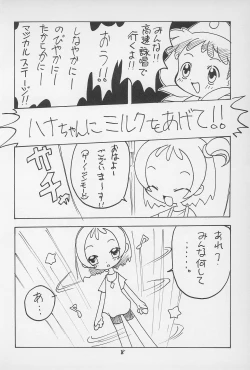 みんな!!
高速詠唱で
行くよ!!
おう!!
しなやかにー
のびやかにー
たからかにー
マジカルステージ!!
ハナちゃんに ミルクをあげて!!
ハナちー
おはよー
ございまーす!!
あれ?
みんな何して
……。
あ…